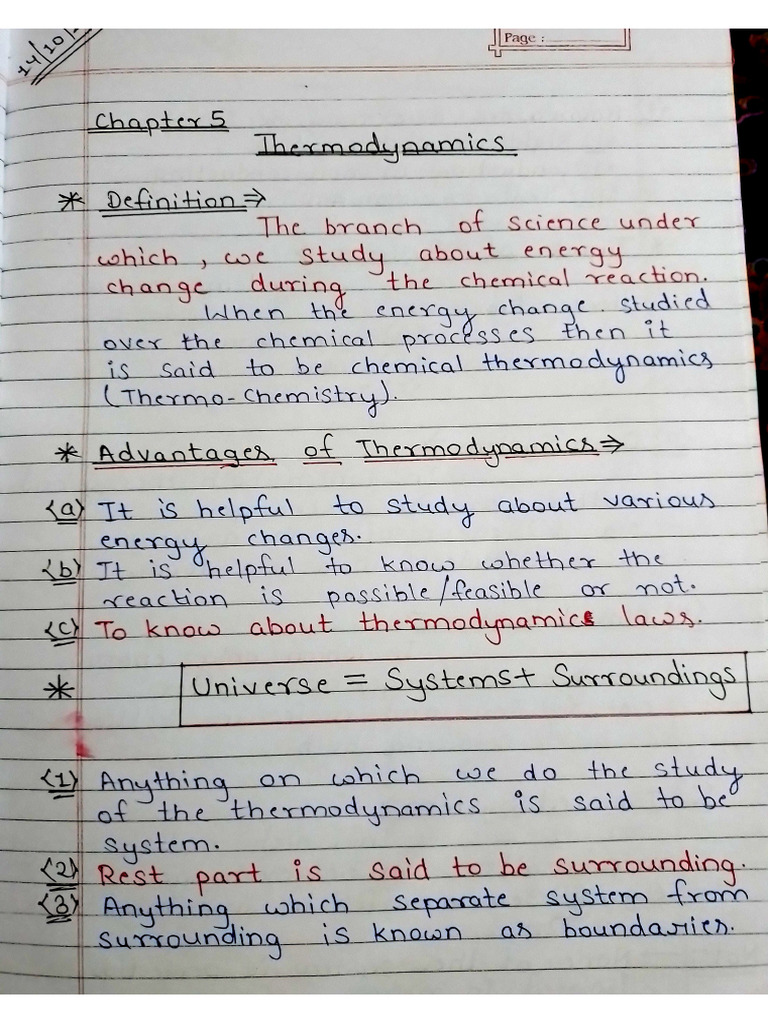 14/10/
Page :
Chapter 5
Thermodynamics
* Definition ⇒
The branch of science under
which, we study about energy
change during the chemical reaction.
When the energy change studied
over the chemical processes then it
is said to be chemical thermodynamics
(Thermo-Chemistry).
* Advantages of Thermodynamics ⇒
(a) It is helpful to study about various
energy changes.
(b) It is helpful to know whether the
reaction is possible/feasible or not.
(c) To know about thermodynamics laws.
* Universe = Systems + Surroundings
(1) Anything on which we do the study
of the thermodynamics is said to be
system.
(2) Rest part is said to be surrounding.
(3) Anything which separate system from
surrounding is known as boundaries.